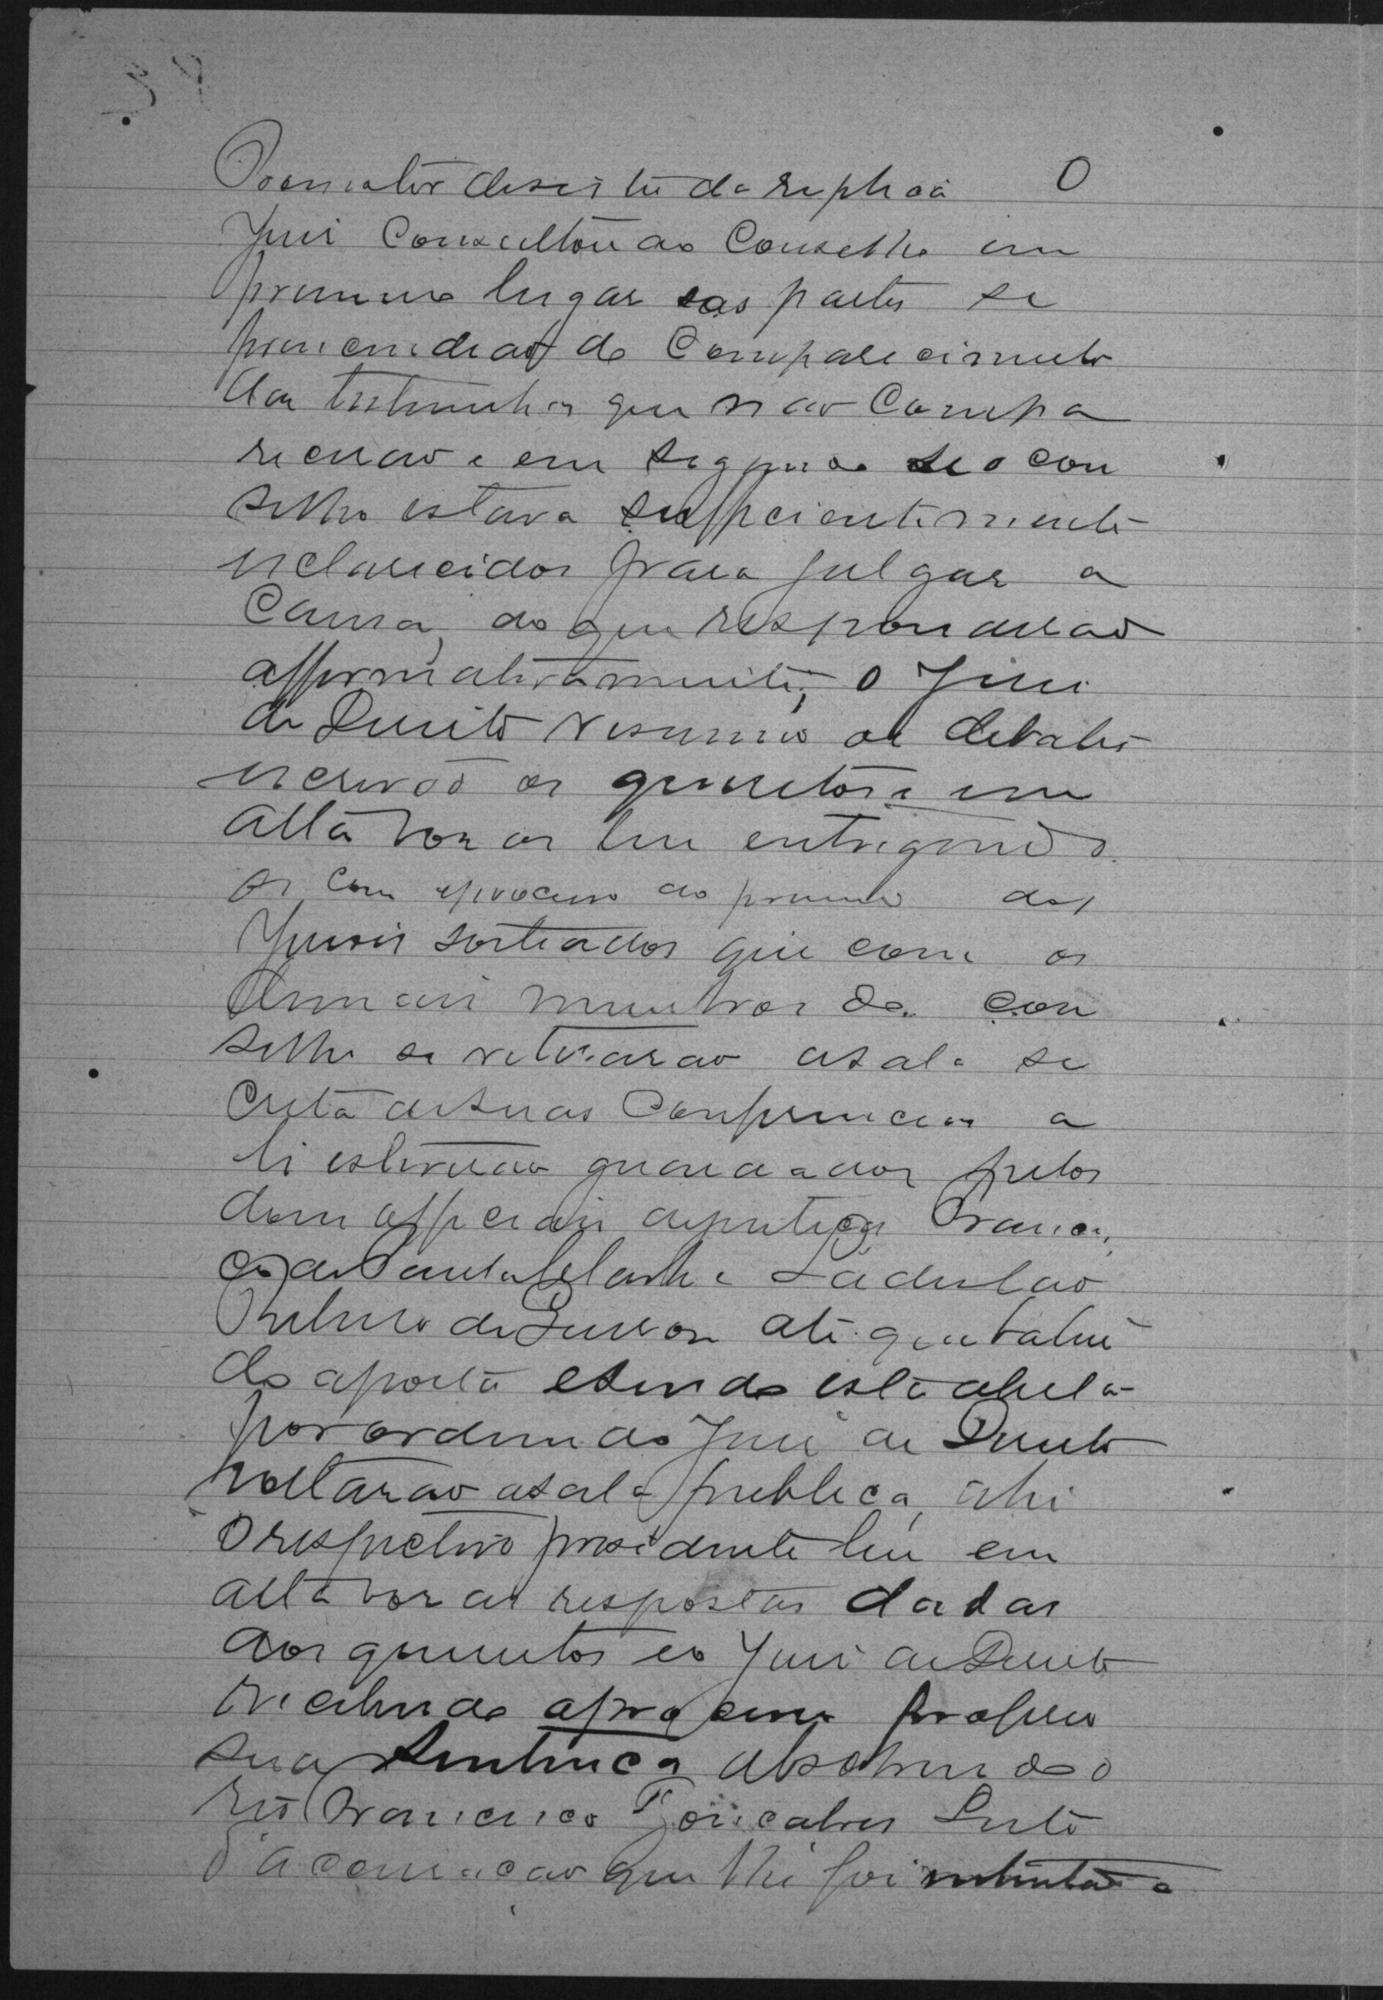 Promotor desistiu da replica O
Juiz Consultou ao Conselho em
primeiro lugar e as partes se
prescindiao do Comparecimento
das testimunhas que nao Compa
recerao e em segundo se o con
selho estava sufficientemente
esclarecidos para julgar a
Causa, ao que responderao
affirmativamente, O Juiz
de Direito resumio os debates
escreveo os quesitos e em
alta voz os leu entregando
os com o processo ao primeiro dos
Juizes sorteados que com os
demais membros do con
selho se retirarao a sala se
creta de suas Conferencias a
li estiverao guardados pelos
dous officiais de justiça Francis
co de Paula e Ladislao
Ribeiro de até que baten
do a porta e sendo esta aberta
por ordem do Juiz de Direito
voltarao a sala publica, ahi
o respectivo presidente leu em
alta voz as respostas dadas
aos quesitos e o Juiz de Direito
recebendo o processo proferio
sua Sentença absolvendo o
réo Francisco Gonçalves
d'accusaçao que lhe foi intentada e